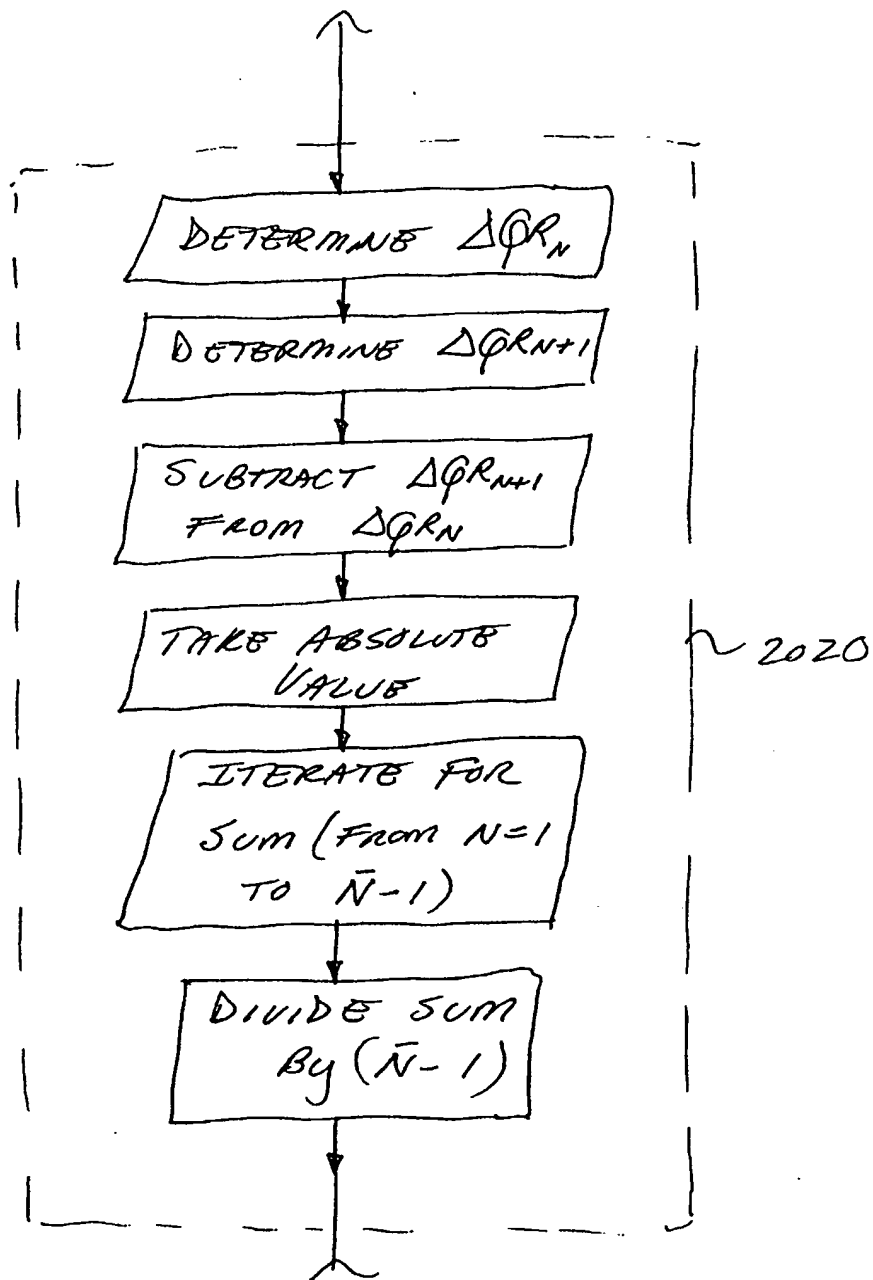 DETERMINE ΔφR_N
DETERMINE ΔφR_N+1
SUBTRACT ΔφR_N+1
FROM ΔφR_N
TAKE ABSOLUTE
VALUE
ITERATE FOR
SUM (FROM N=1
TO N̄-1)
DIVIDE SUM
BY (N̄-1)
2020